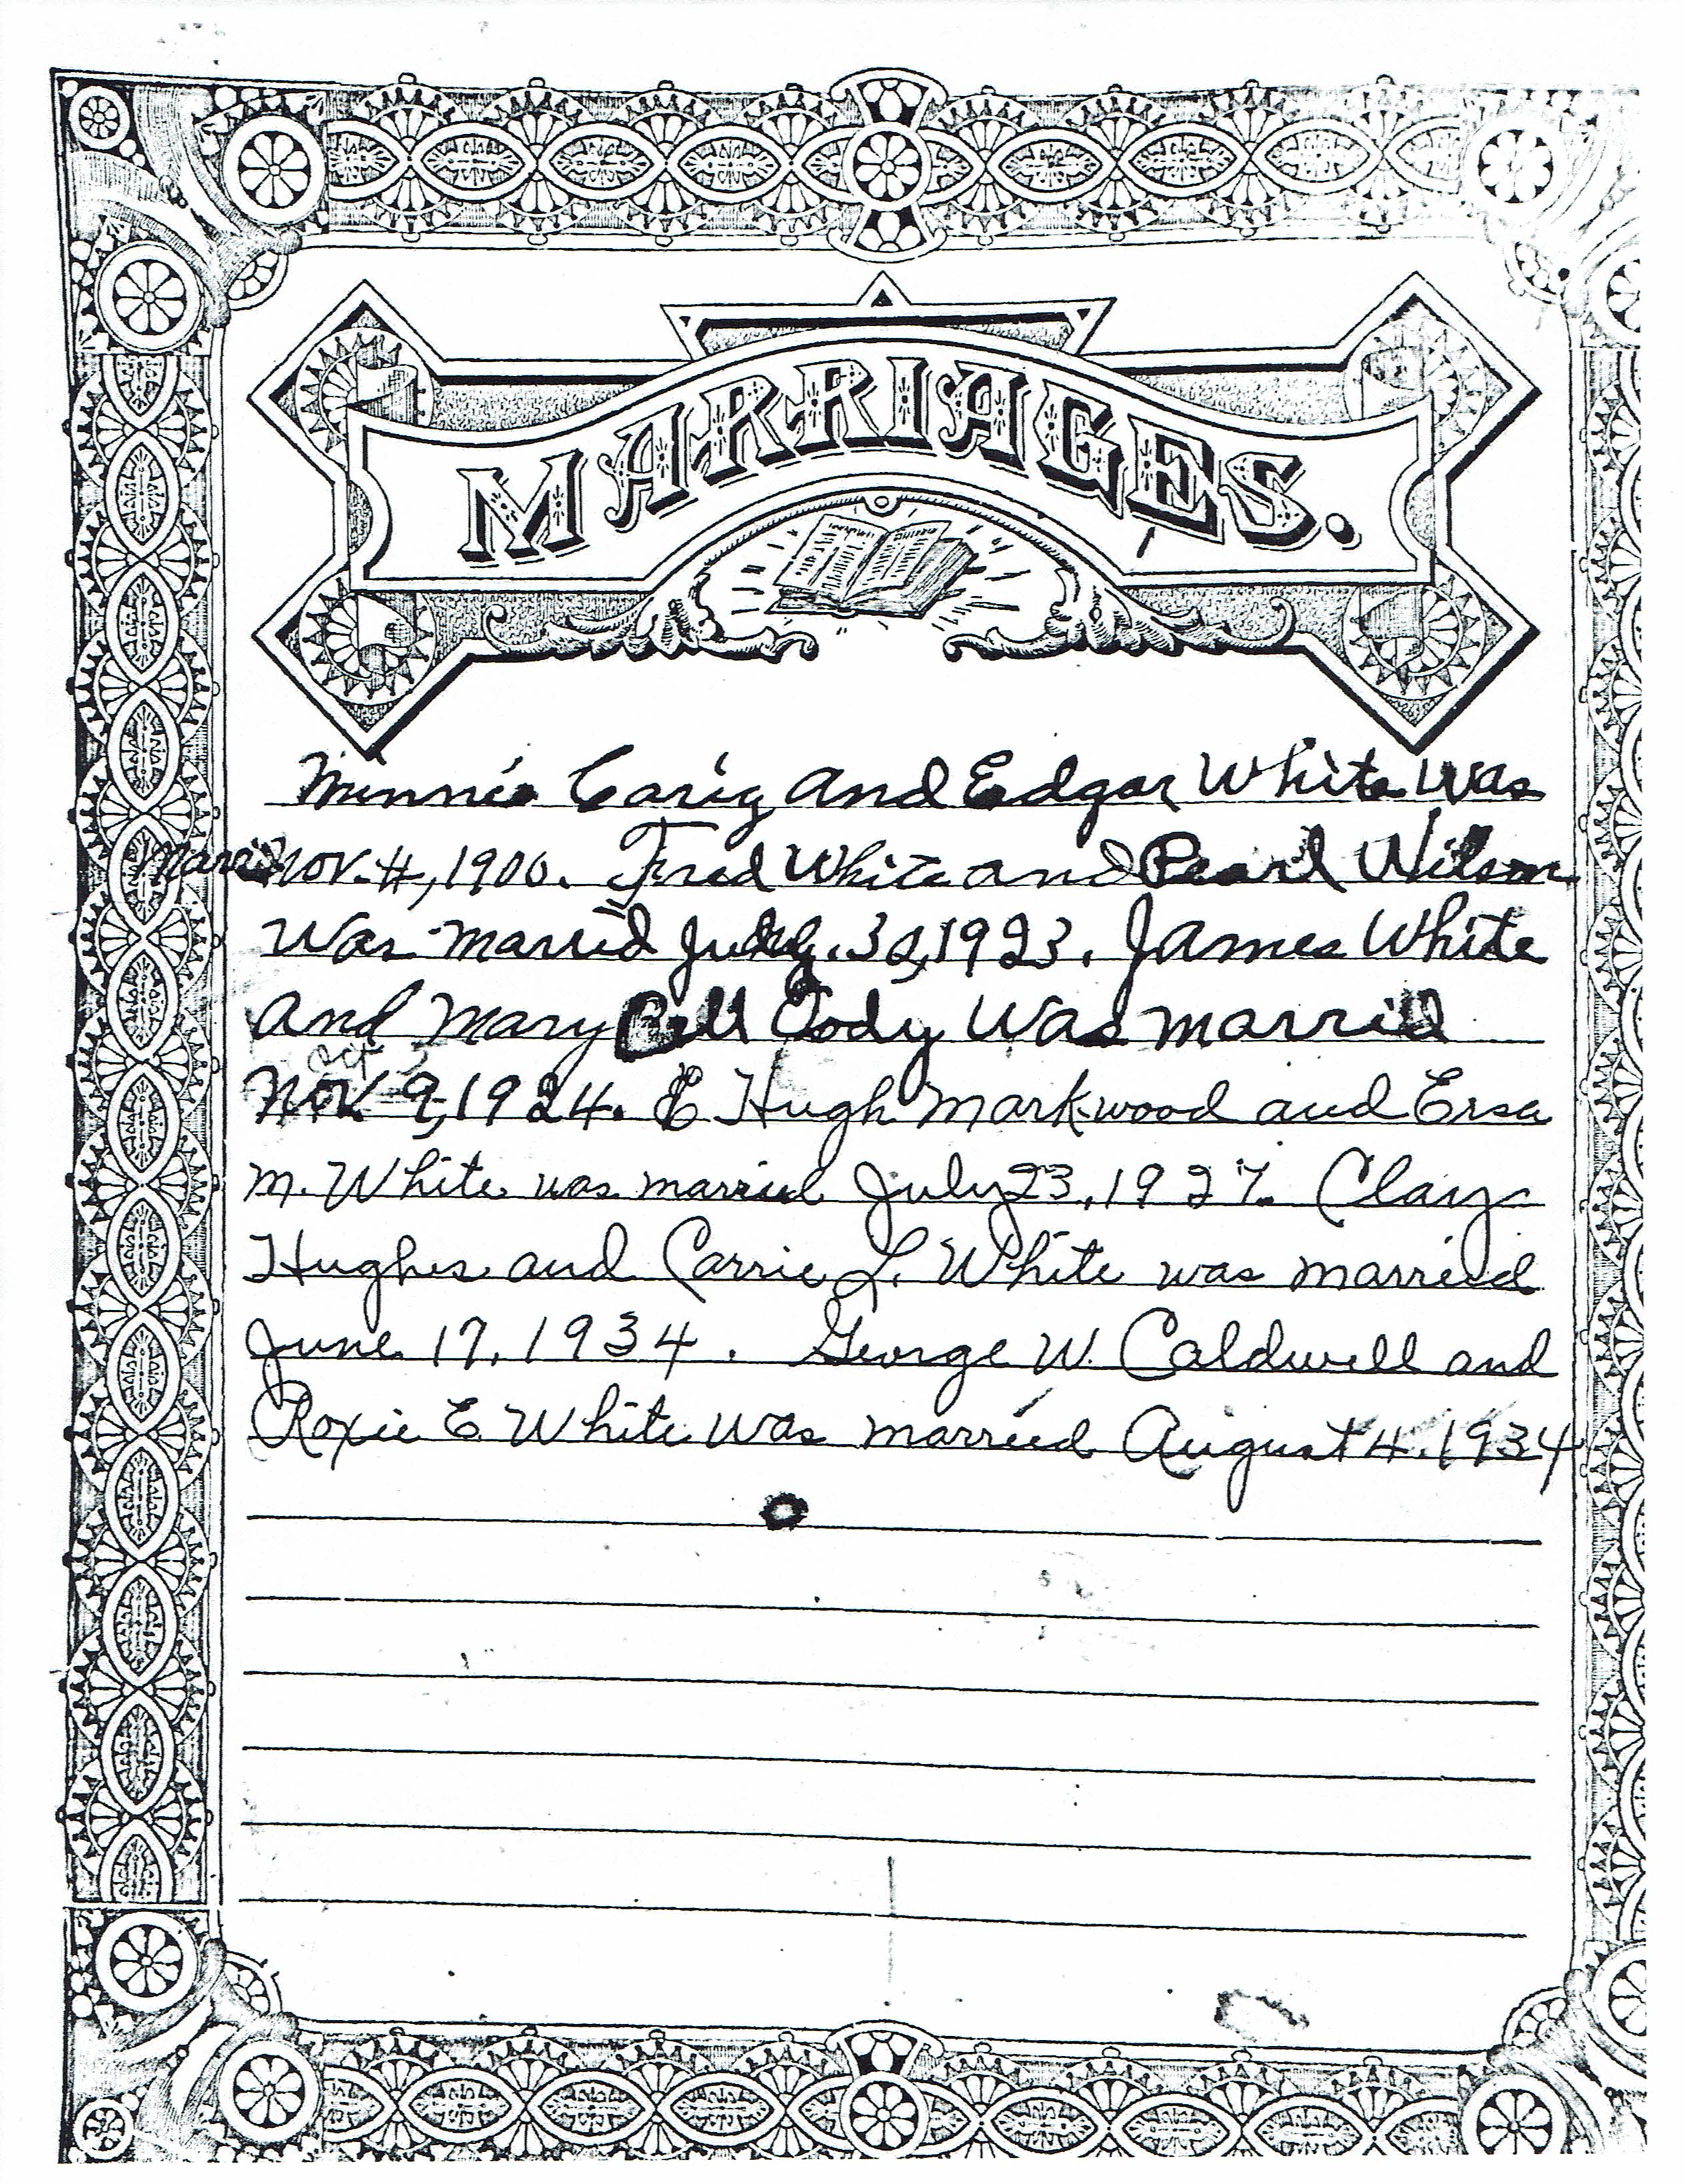 MARRIAGES.
Minnie Carig and Edgar White was
Marrid Nov. 4, 1900. Fred White and Pearl Wilson
Was marrid July. 30, 1923. James White
and Mary Bell Cody was marrid
Oct
Nov. 9, 1924. E Hugh Markwood and Ersa
M. White was married July 23, 1927. Clay
Hughes and Carrie L. White was married
June 17, 1934. George W. Caldwell and
Roxie E White was married August 4. 1934